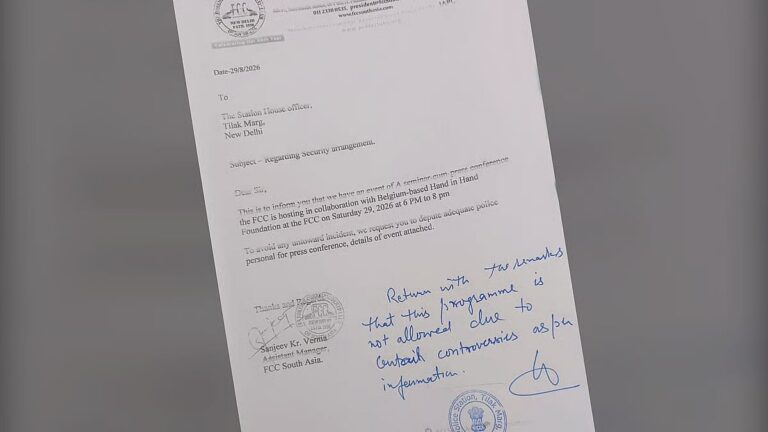 FCC
NEW DELHI
ESTD. 1958
011 2338 0535, president@fccsouthasia
www.fccsouthasia.com
Date-29/8/2026
To
The Station House officer,
Tilak Marg,
New Delhi
Subject – Regarding Security arrangement.
Dear Sir,
This is to inform you that we have an event of A seminar-cum-press conference
the FCC is hosting in collaboration with Belgium-based Hand in Hand
Foundation at the FCC on Saturday 29, 2026 at 6 PM to 8 pm
To avoid any untoward incident, we request you to depute adequate police
personal for press conference, details of event attached.
Thanks and
Sanjeev Kr. Verma
Assistant Manager,
FCC South Asia.
Return with the remarks
that this programme is
not allowed due to
controversies as per
information.
Police Station, Tilak Marg